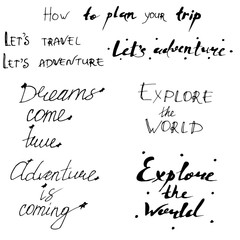 How to plan your trip
Let's travel
Let's adventure
Let's adventure
Dreams
come
true
Explore
the
World
Adventure
is
coming
Explore
the
World